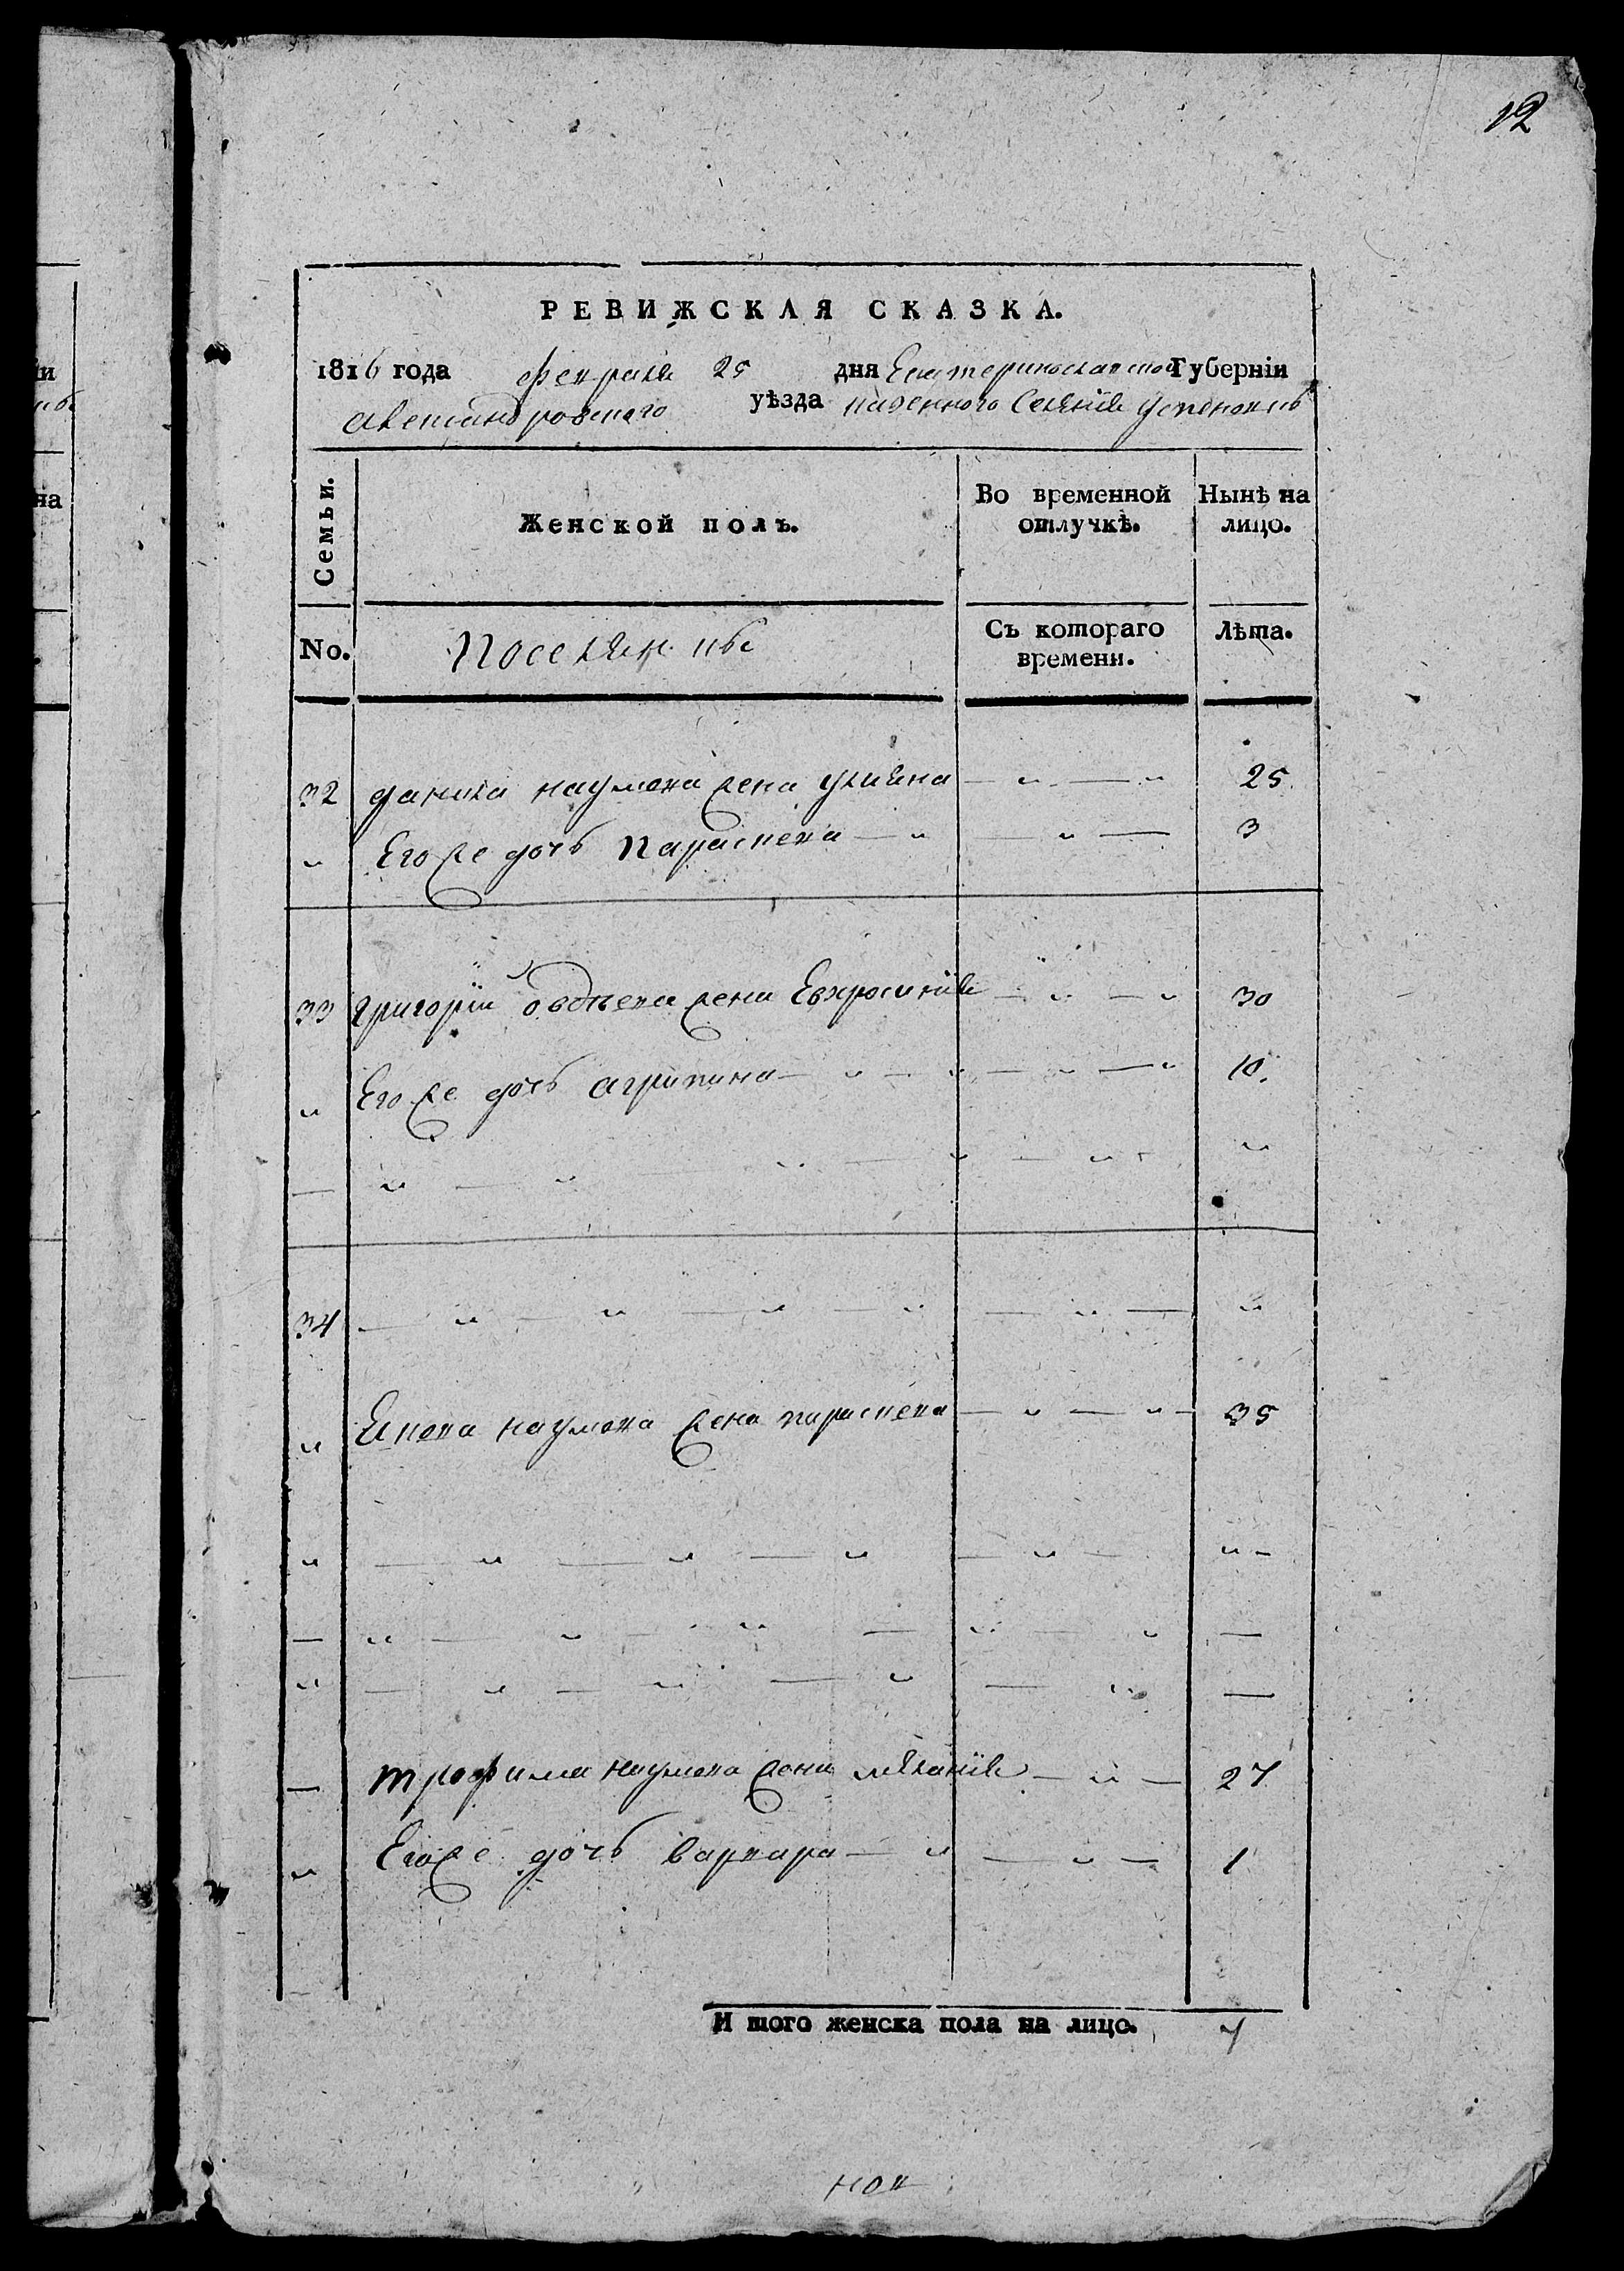 12
РЕВИЖСКАЯ СКАЗКА.
1816 года февраля 25 дня Екатеринославской Губерніи
Александровского уѣзда казенного Селенія Успеновкѣ
Семьи. Женской полъ. Во временной отлучкѣ. Нынѣ на лицо.
No. Поселян Съ котораго времени. Лѣта.
32 данила наумова жена улияна — " — " 25
" Его же дочь параскева — " — " — 3
33 григорія овдѣева жена Евфросинія — " — " 30
" Его же дочь агрипина — " — " — " — " 10.
— " — " — " — " — " "
34 — " — " — " — " — " — "
" Якова наумова жена параскева — " — " — 35
" — " — " — " — " — " —
— " — " — " — " — " — " —
" — " — " — " — " — " —
— трофима наумова жена меланія — " — 27
" Его же дочь варвара — " — " — 1
И того женска пола на лицо. 7